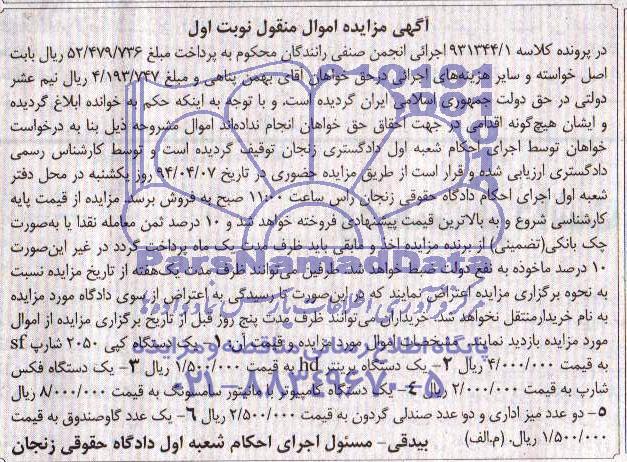 آگهی مزایده اموال منقول نوبت اول
در پرونده کلاسه ۹۳۱۳۴۴/۱ اجرائی انجمن صنفی رانندگان محکوم به پرداخت مبلغ ۵۲/۴۷۹/۷۳۶ ریال بابت
اصل خواسته و سایر هزینه‌های اجرائی درحق خواهان آقای بهمن پناهی و مبلغ ۴/۱۹۳/۷۴۷ ریال نیم عشر
دولتی در حق دولت جمهوری اسلامی ایران گردیده است. و با توجه به اینکه حکم به خوانده ابلاغ گردیده
و ایشان هیچ‌گونه اقدامی در جهت احقاق حق خواهان انجام نداده‌اند اموال مشروحه ذیل بنا به درخواست
خواهان توسط اجرای احکام شعبه اول دادگستری زنجان توقیف گردیده است و توسط کارشناس رسمی
دادگستری ارزیابی شده و قرار است از طریق مزایده حضوری در تاریخ ۹۴/۰۴/۰۷ روز یکشنبه در محل دفتر
شعبه اول اجرای احکام دادگاه حقوقی زنجان راس ساعت ۱۱:۰۰ صبح به فروش برسد. مزایده از قیمت پایه
کارشناسی شروع و به بالاترین قیمت پیشنهادی فروخته خواهد شد و ۱۰ درصد ثمن معامله نقدا یا به‌صورت
چک بانکی(تضمینی) از برنده مزایده اخذ و مابقی باید ظرف مدت یک ماه پرداخت گردد در غیر این‌صورت
۱۰ درصد ماخوذه به نفع دولت ضبط خواهد شد. طرفین می‌توانند ظرف مدت یک‌هفته از تاریخ مزایده نسبت
به نحوه برگزاری مزایده اعتراض نمایند که در این‌صورت تا رسیدگی به اعتراض از سوی دادگاه مورد مزایده
به نام خریدارمنتقل نخواهد شد. خریداران می‌توانند ظرف مدت پنج روز قبل از تاریخ برگزاری مزایده از اموال
مورد مزایده بازدید نمایند. مشخصات اموال مورد مزایده و قیمت آن ۱- یک دستگاه کپی ۲۰۵۰ شارپ sf
به قیمت ۴/۰۰۰/۰۰۰ ریال ۲- یک دستگاه پرینتر hd به قیمت ۱/۵۰۰/۰۰۰ ریال ۳- یک دستگاه فکس
شارپ به قیمت ۲/۰۰۰/۰۰۰ ریال ٤- یک دستگاه کامپیوتر با مانیتور سامسونگ به قیمت ۸/۰۰۰/۰۰۰ ریال
۵- دو عدد میز اداری و دو عدد صندلی گردون به قیمت ۲/۵۰۰/۰۰۰ ریال ۶- یک عدد گاوصندوق به قیمت
۱/۵۰۰/۰۰۰ ریال. (م.الف)
بیدقی- مسئول اجرای احکام شعبه اول دادگاه حقوقی زنجان
ParsNamadData
پایگاه اطلاع رسانی مناقصه و مزایده
۰۲۱-۸۸۳۴۹۶۷۰-۵